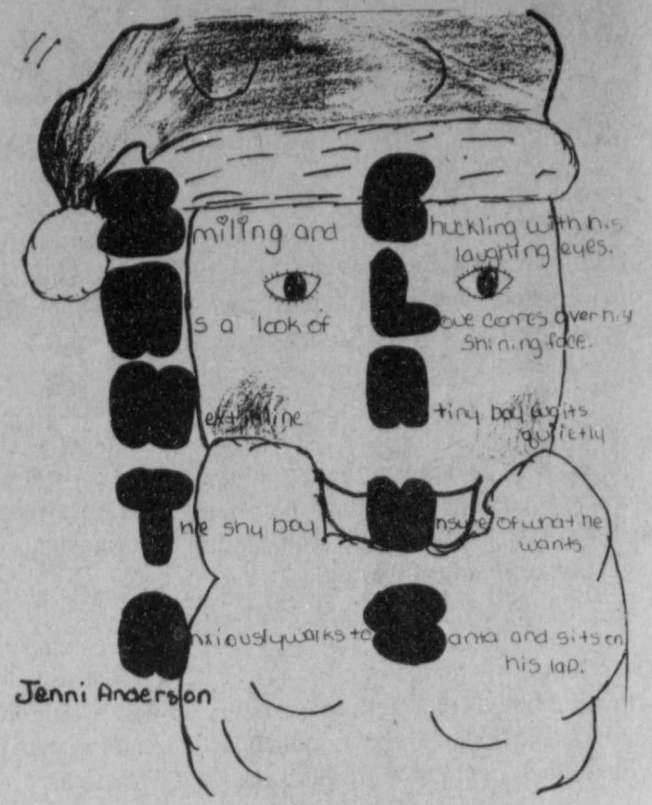 Smiling and Chuckling with his
laughing eyes.
As a look of Love comes over his
shining face.
Next in line A tiny boy waits
quietly
The shy boy Unsure of what he
wants
Anxiously walks to Santa and sits on
his lap.
Jenni Anderson